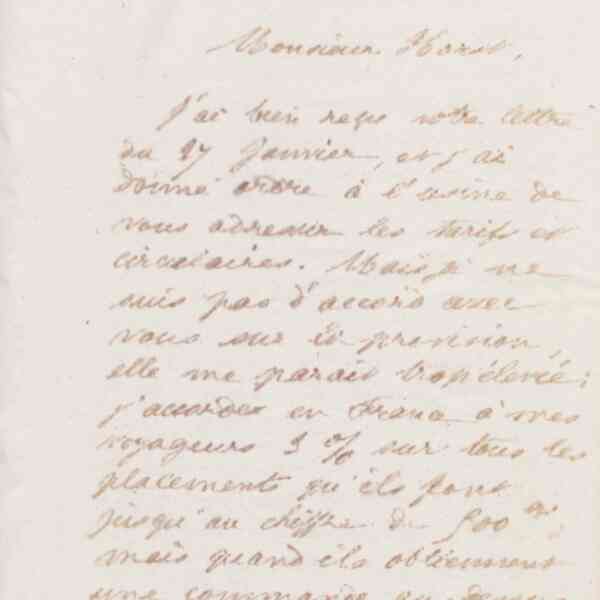 Monsieur Horst,
J'ai bien reçu votre lettre
du 17 Janvier, et j'ai
donné ordre à l'usine de
vous adresser les tarifs et
circulaires. Mais je ne
suis pas d'accord avec
vous sur la provision,
elle me parait trop élevée;
j'accorde en France à mes
voyageurs 3 % sur tous les
placements qu'ils font
jusqu'au chiffre de 500
mais quand ils obtiennent
une commande au dessus